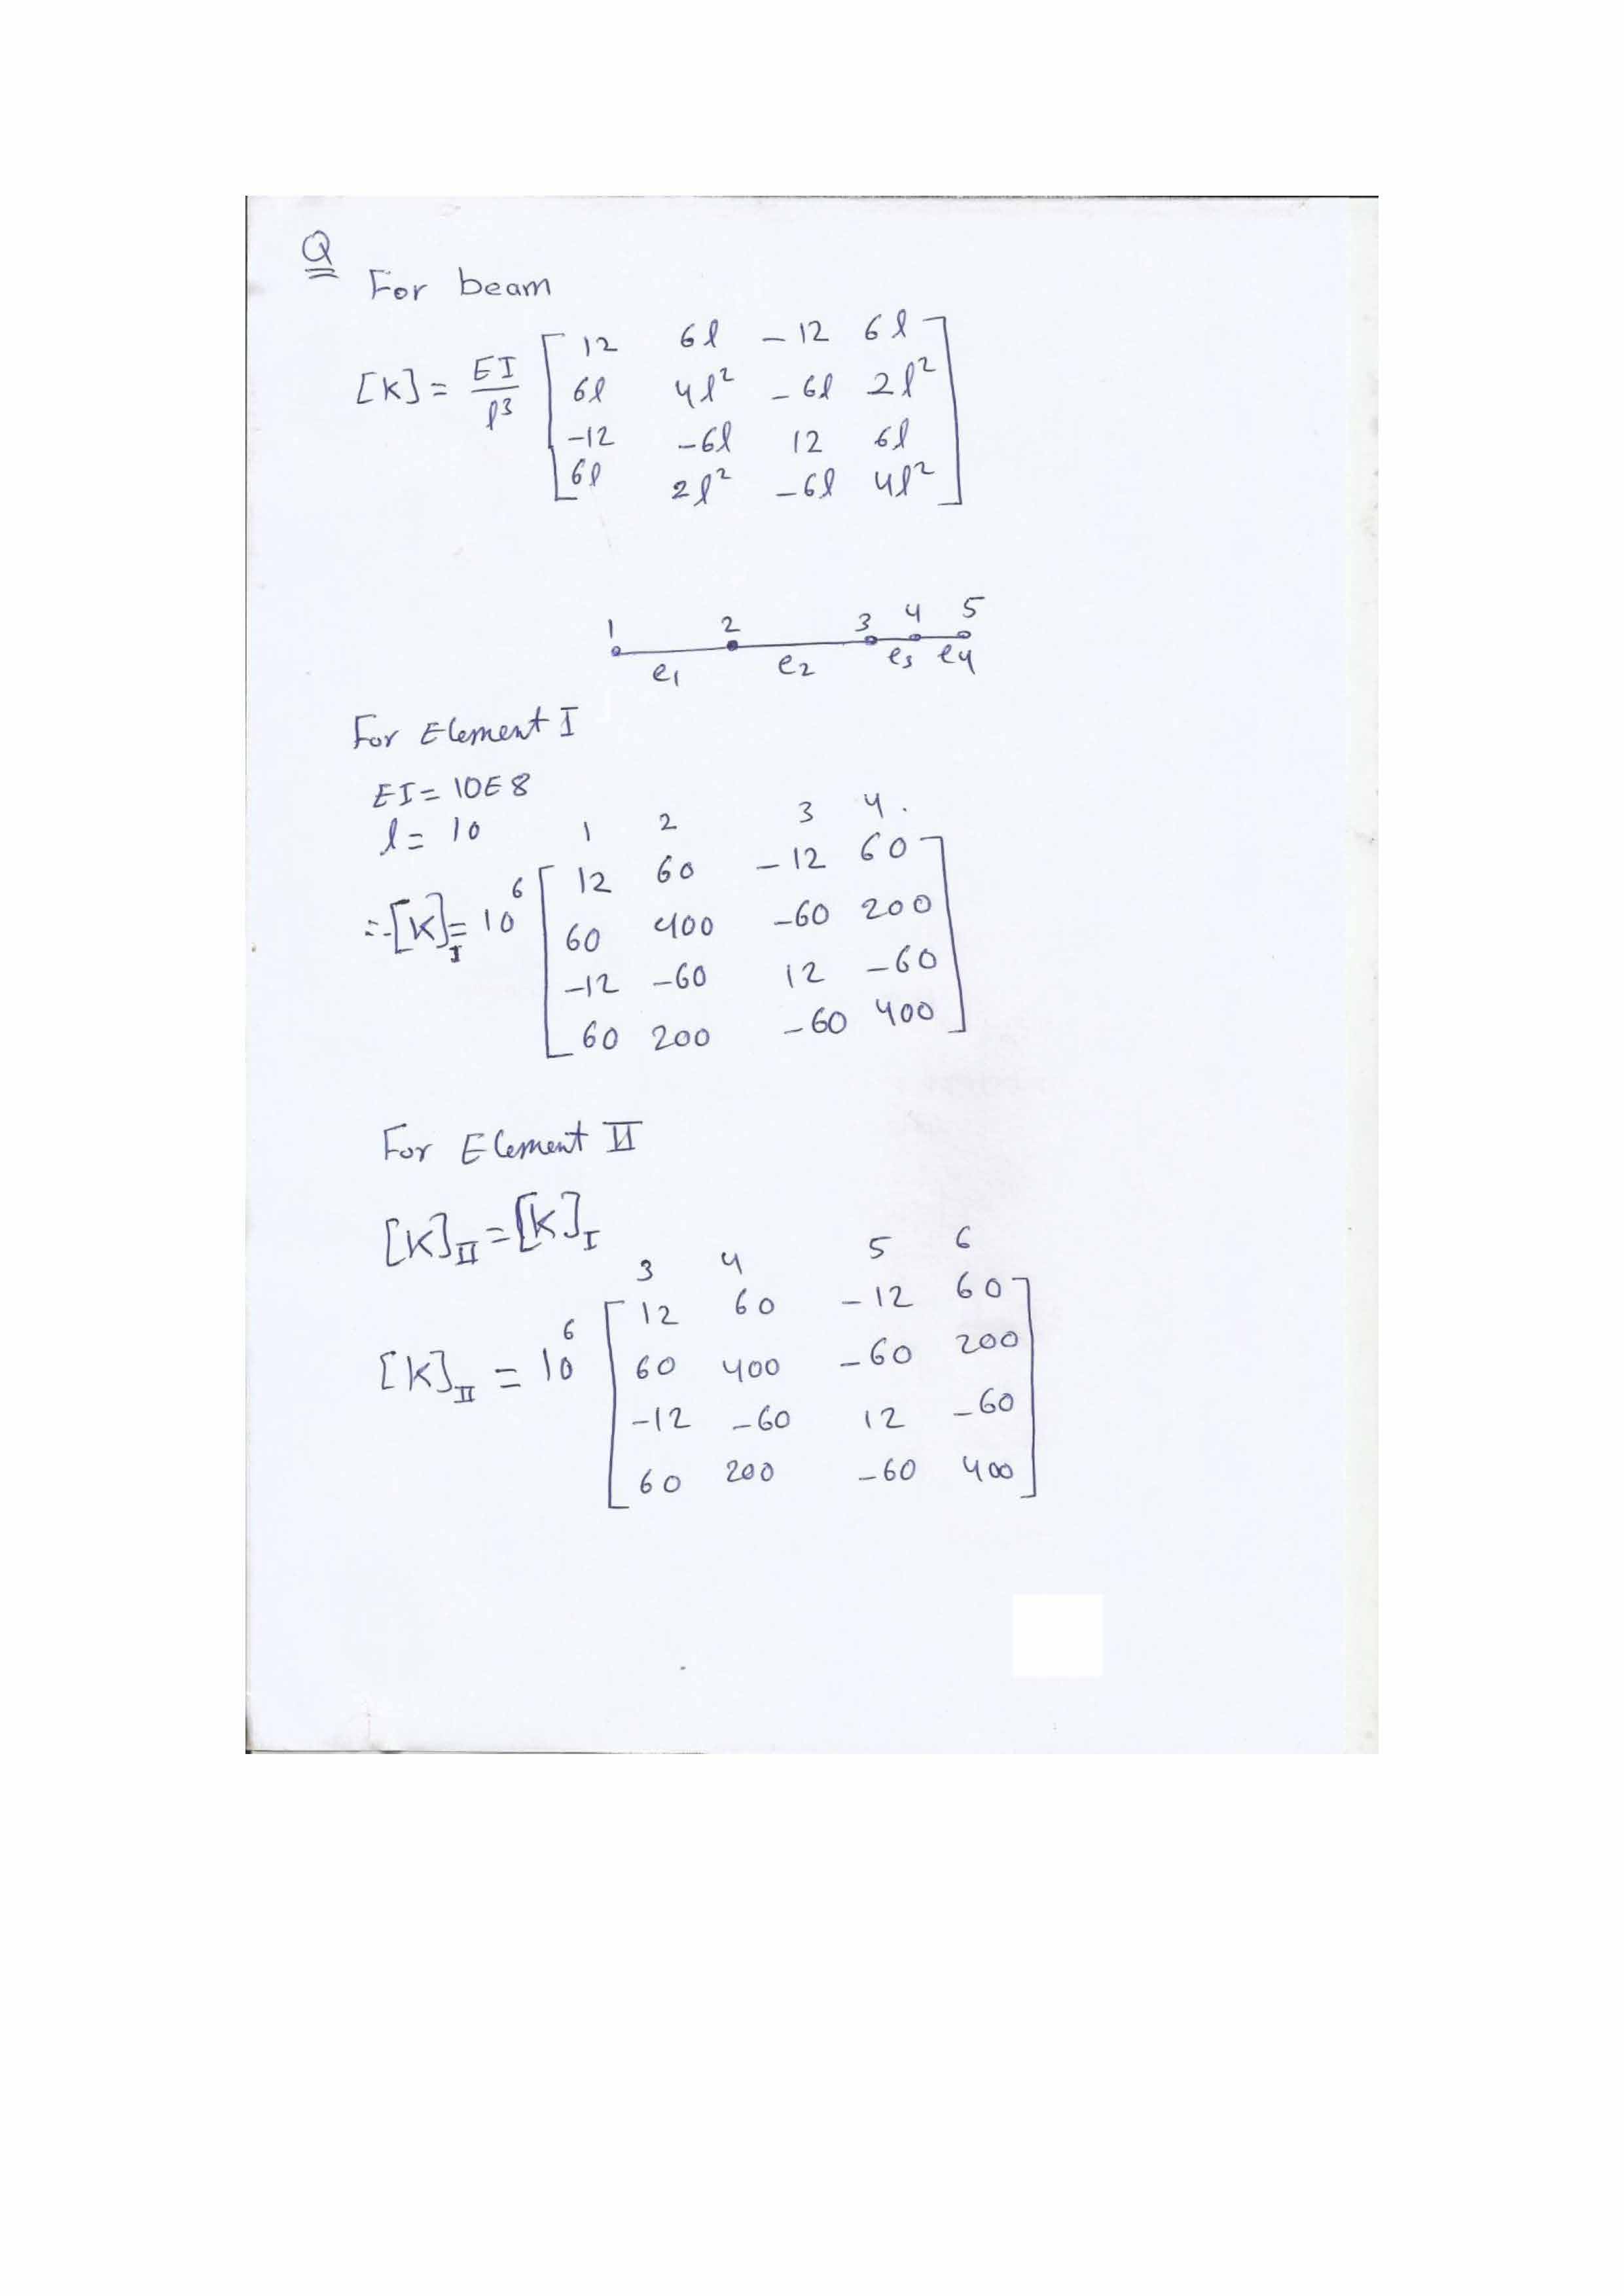 Q
For beam
[K] = EI/l³ [ 12 6l -12 6l
6l 4l² -6l 2l²
-12 -6l 12 6l
6l 2l² -6l 4l² ]
1 2 3 4 5
e1 e2 e3 e4
For Element I
EI = 10E8
l = 10
1 2 3 4.
∴ [K]I = 10⁶ [ 12 60 -12 60
60 400 -60 200
-12 -60 12 -60
60 200 -60 400 ]
For Element II
[K]II = [K]I
3 4 5 6
[K]II = 10⁶ [ 12 60 -12 60
60 400 -60 200
-12 -60 12 -60
60 200 -60 400 ]